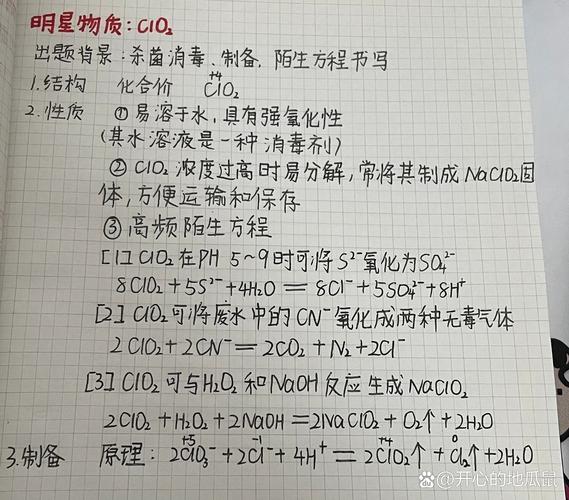 明星物质:ClO₂
出题背景:杀菌消毒、制备、陌生方程书写
1.结构 化合价 +4 ClO₂
2.性质 ①易溶于水,具有强氧化性
(其水溶液是一种消毒剂)
②ClO₂浓度过高时易分解,常将其制成NaClO₂固
体,方便运输和保存
③高频陌生方程
[1]ClO₂在PH 5~9时可将S²⁻氧化为SO₄²⁻
8ClO₂+5S²⁻+4H₂O=8Cl⁻+5SO₄²⁻+8H⁺
[2]ClO₂可将废水中的CN⁻氧化成两种无毒气体
2ClO₂+2CN⁻=2CO₂+N₂+2Cl⁻
[3]ClO₂可与H₂O₂和NaOH反应生成NaClO₂
2ClO₂+H₂O₂+2NaOH=2NaClO₂+O₂↑+2H₂O
+5 -1 +4 0
3.制备 原理:2ClO₃⁻+2Cl⁻+4H⁺=2ClO₂↑+Cl₂↑+2H₂O
@开心的地瓜鼠